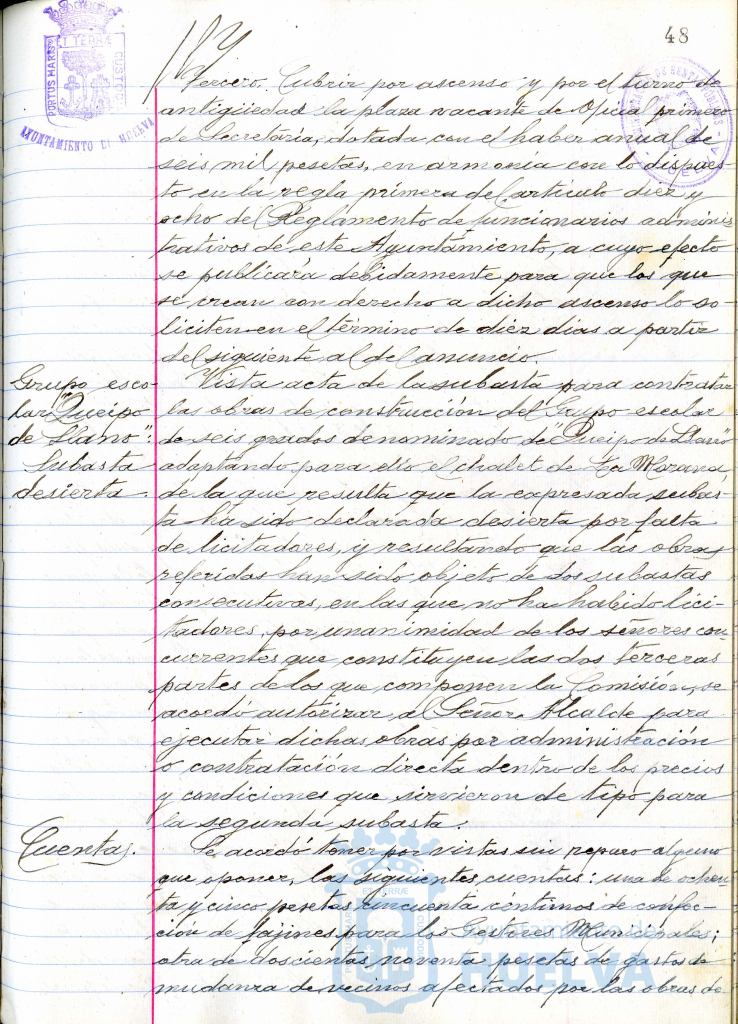 48
PORTUS MARIS ET TERRÆ CUSTODIA
AYUNTAMIENTO DE HUELVA
Tercero. Cubrir por ascenso y por el turno de
antigüedad la plaza vacante de Oficial primero
de Secretaría, dotada con el haber anual de
seis mil pesetas, en armonía con lo dispues
to en la regla primera del artículo diez y
ocho del Reglamento de funcionarios adminis
trativos de este Ayuntamiento, a cuyo efecto
se publicará debidamente para que los que
se crean con derecho a dicho ascenso lo so
liciten en el término de diez días a partir
del siguiente al del anuncio.
Grupo esco
lar "Queipo
de Llano":
Subasta
desierta.
Vista acta de la subasta para contratar
las obras de construcción del Grupo escolar
de seis grados denominado de "Queipo de Llano"
adaptando para ello el chalet de La Morana,
de la que resulta que la expresada subas
ta ha sido declarada desierta por falta
de licitadores, y resultando que las obras
referidas han sido objeto de dos subastas
consecutivas, en las que no ha habido lici
tadores, por unanimidad de los señores con
currentes que constituyen las dos terceras
partes de los que componen la Comisión, se
acordó autorizar al Señor Alcalde para
ejecutar dichas obras por administración
o contratación directa dentro de los precios
y condiciones que sirvieron de tipo para
la segunda subasta.
Cuentas.
Se acordó tener por vistas sin reparo alguno
que oponer, las siguientes cuentas: una de ochen
ta y cinco pesetas cincuenta céntimos de confec
ción de fajines para los Gestores Municipales;
otra de doscientas noventa pesetas de gastos de
mudanza de vecinos afectados por las obras de
HUELVA